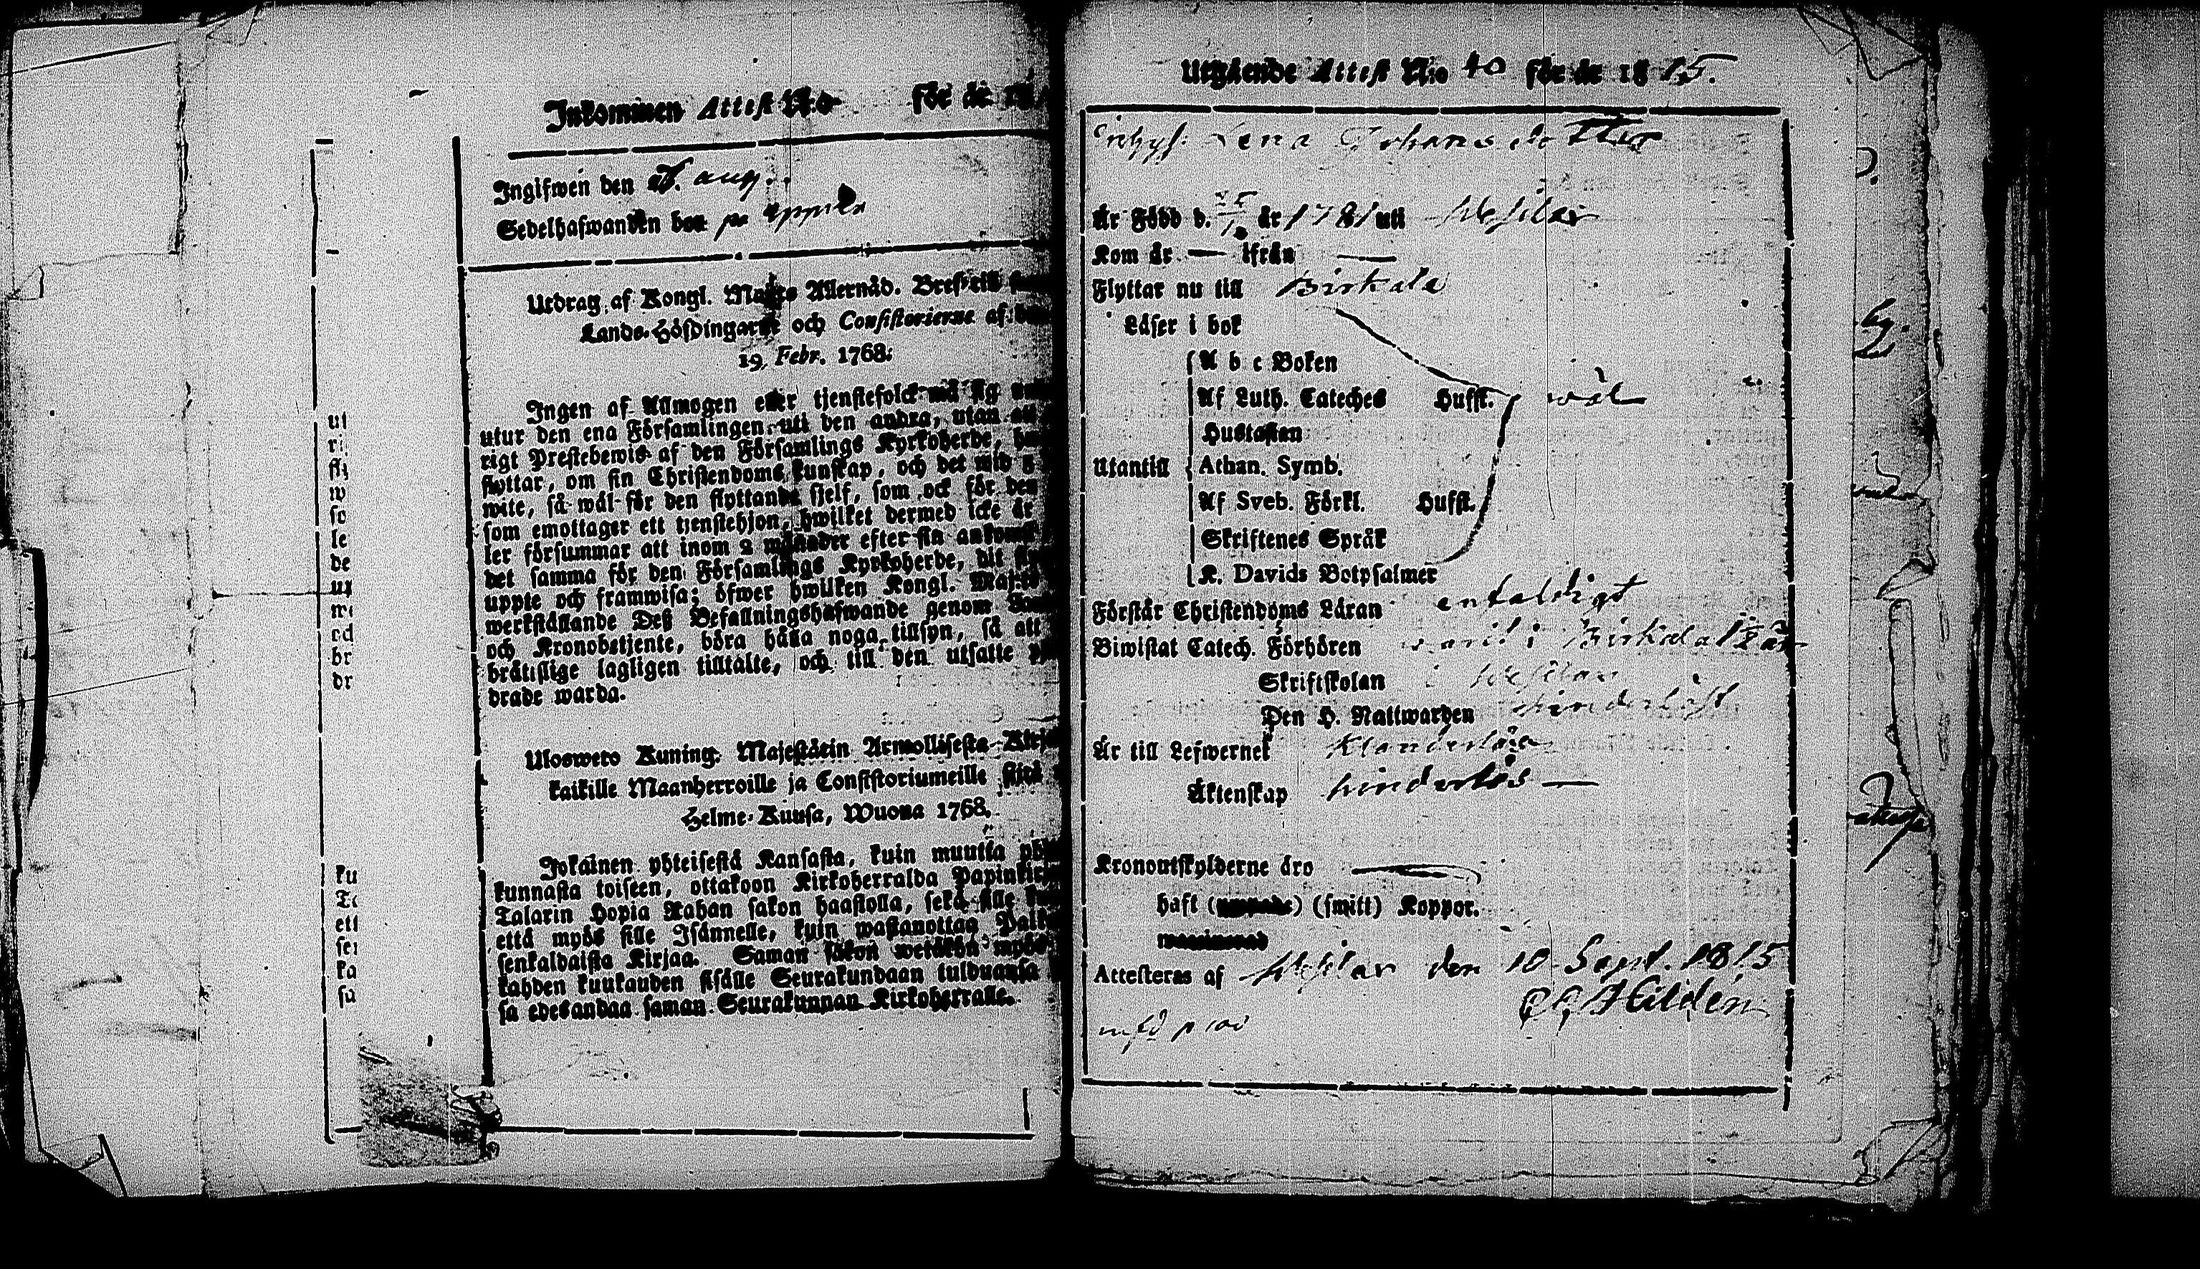 Inkommen Attest N:o för år 18
Ingifwen den aug.
Sedelhafwanden bor på
Utdrag af Kongl. Maj:ts Allernåd. Bref till
Lands-Höfdingarne och Consistorierne af den
19 Febr. 1768.
Ingen af Allmogen eller tjenstefolck må sig
utur den ena Församlingen uti den andra, utan att
rigt Prestebewis af den Församlings Kyrkoherde,
flyttar, om sin Christendoms kunskap, och det wid
wite, så wäl för den flyttande sjelf, som ock för den
som emottager ett tjenstehjon, hwilket dermed icke är
ler försummar att inom 2 månader efter sin ankomst
det samma för den Församlings Kyrkoherde, dit
uppte och framwisa; öfwer hwilken Kongl. Maj:ts
werkställande Deß Befallningshafwande genom
och Kronobetjente, böra hålla noga tillsyn, så att
brätslige lagligen tilltalte, och till den utsatte
drade warda.
Uloswetto Kuning. Majestätin Armollisesta Kirja
kaikille Maanherroille ja Consistoriumeille siitä
Helme-Kuusa, Wuona 1768.
Jokainen yhteisestä Kansasta, kuin muutta
kunnasta toiseen, ottakoon Kirkoherralda Papinkirja
Talarin Hopia Rahan sakon haastolla, sekä sille
että myös sille Isännelle, kuin wastanottaa Palk
senkaldaista Kirjaa. Saman sakon wetäkön myös
kahden kuukauden sisälle Seurakundaan tulduansa
sa edesandaa saman Seurakunnan Kirkoherralle.
Utgående Attest N:o 40 för år 1815.
Inhys: Lena Johans dotter
Är Född d. år 1781 uti Wesilax
Kom år — ifrån —
Flyttar nu till Birkala
Läser i bok
A b c Boken
Af Luth. Cateches Husst. wäl
Hustaflan
Utantill Athan. Symb.
Af Sveb. Förkl. Husst.
Skriftenes Språk
K. Davids Botpsalmer
Förstår Christendoms Läran enfaldigt
Biwistat Catech. Förhören warit i Birkala 1½ år
Skriftskolan i Wesilax
Den H. Nattwarden hinderlöst
Är till Lefwernet klanderlös
Äktenskap hinderlös —
Kronoutskylderne äro —
haft () (smitt) Koppor.
Attesteras af Wesilax den 10 Sept. 1815
Hildén